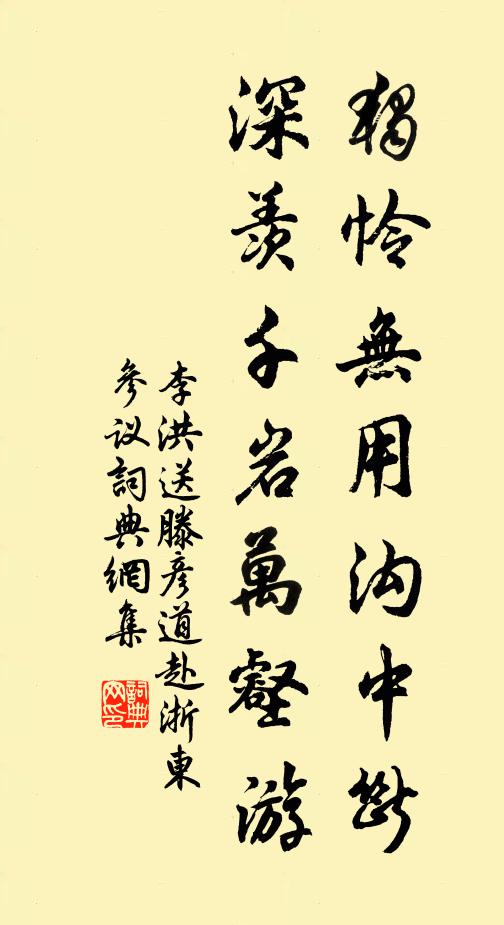 獨怜無用沟中斷
深羨千岩萬壑游
李洪送滕彦道赴浙東
參议詞典網集
詞典
网印